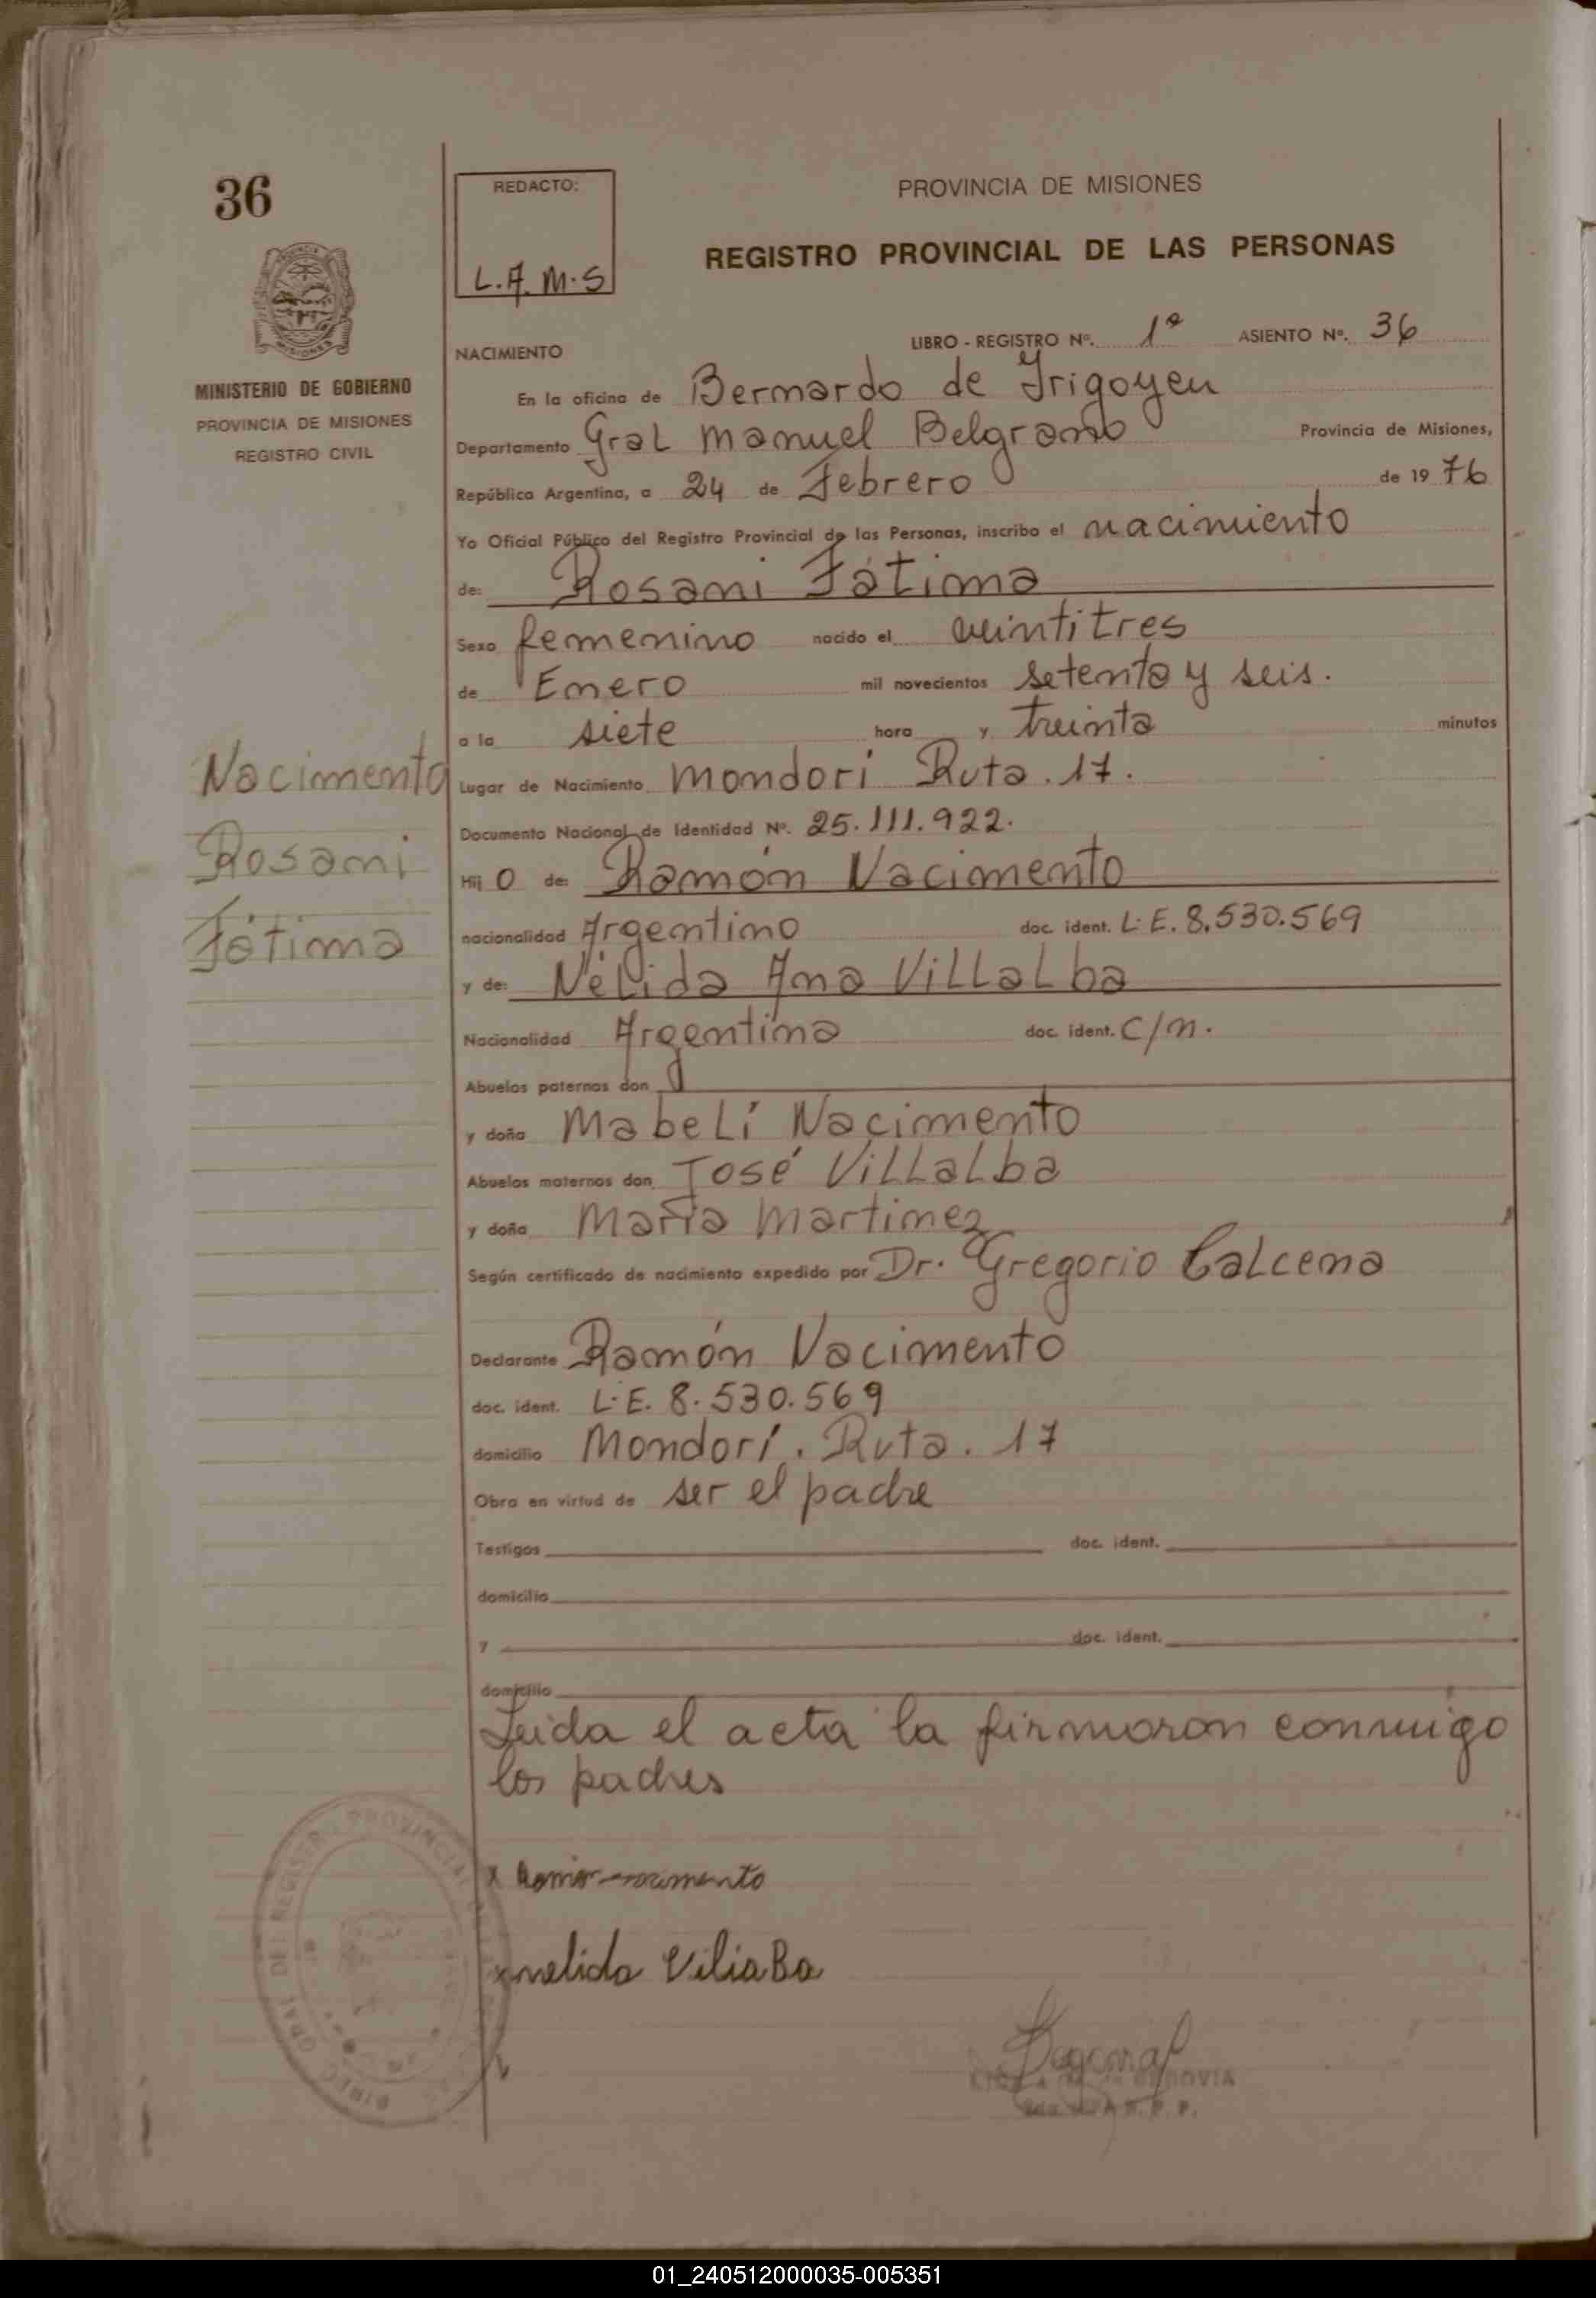 36
REDACTO:
L.A.M.S
PROVINCIA DE MISIONES
REGISTRO PROVINCIAL DE LAS PERSONAS
MISIONES
MINISTERIO DE GOBIERNO
PROVINCIA DE MISIONES
REGISTRO CIVIL
LIBRO - REGISTRO Nº. 1º ASIENTO Nº. 36
NACIMIENTO
En la oficina de Bernardo de Irigoyen
Departamento Gral Manuel Belgrano Provincia de Misiones,
República Argentina, a 24 de Febrero de 19 76
Yo Oficial Público del Registro Provincial de las Personas, inscribo el nacimiento
de: Rosani Fátima
Sexo femenino nacido el veintitres
de Enero mil novecientos setenta y seis.
a la siete hora y treinta minutos
Nacimento
Rosani
Fátima
Lugar de Nacimiento Mondori Ruta. 17.
Documento Nacional de Identidad Nº. 25.111.922.
Hij o de: Ramón Nacimento
nacionalidad Argentino doc. ident. L.E. 8.530.569
y de: Nélida Ana Villalba
Nacionalidad Argentina doc. ident. C/n.
Abuelos paternos don
y doña Mabelí Nacimento
Abuelos maternos don José Villalba
y doña María Martinez
Según certificado de nacimiento expedido por Dr. Gregorio Calcena
Declarante Ramón Nacimento
doc. ident. L.E. 8.530.569
domicilio Mondorí. Ruta. 17
Obra en virtud de ser el padre
Testigos doc. ident.
domicilio
y doc. ident.
domicilio
Leida el acta la firmaron conmigo
los padres
x Ramon nacimento
x nelida Viliaba
01_240512000035-005351